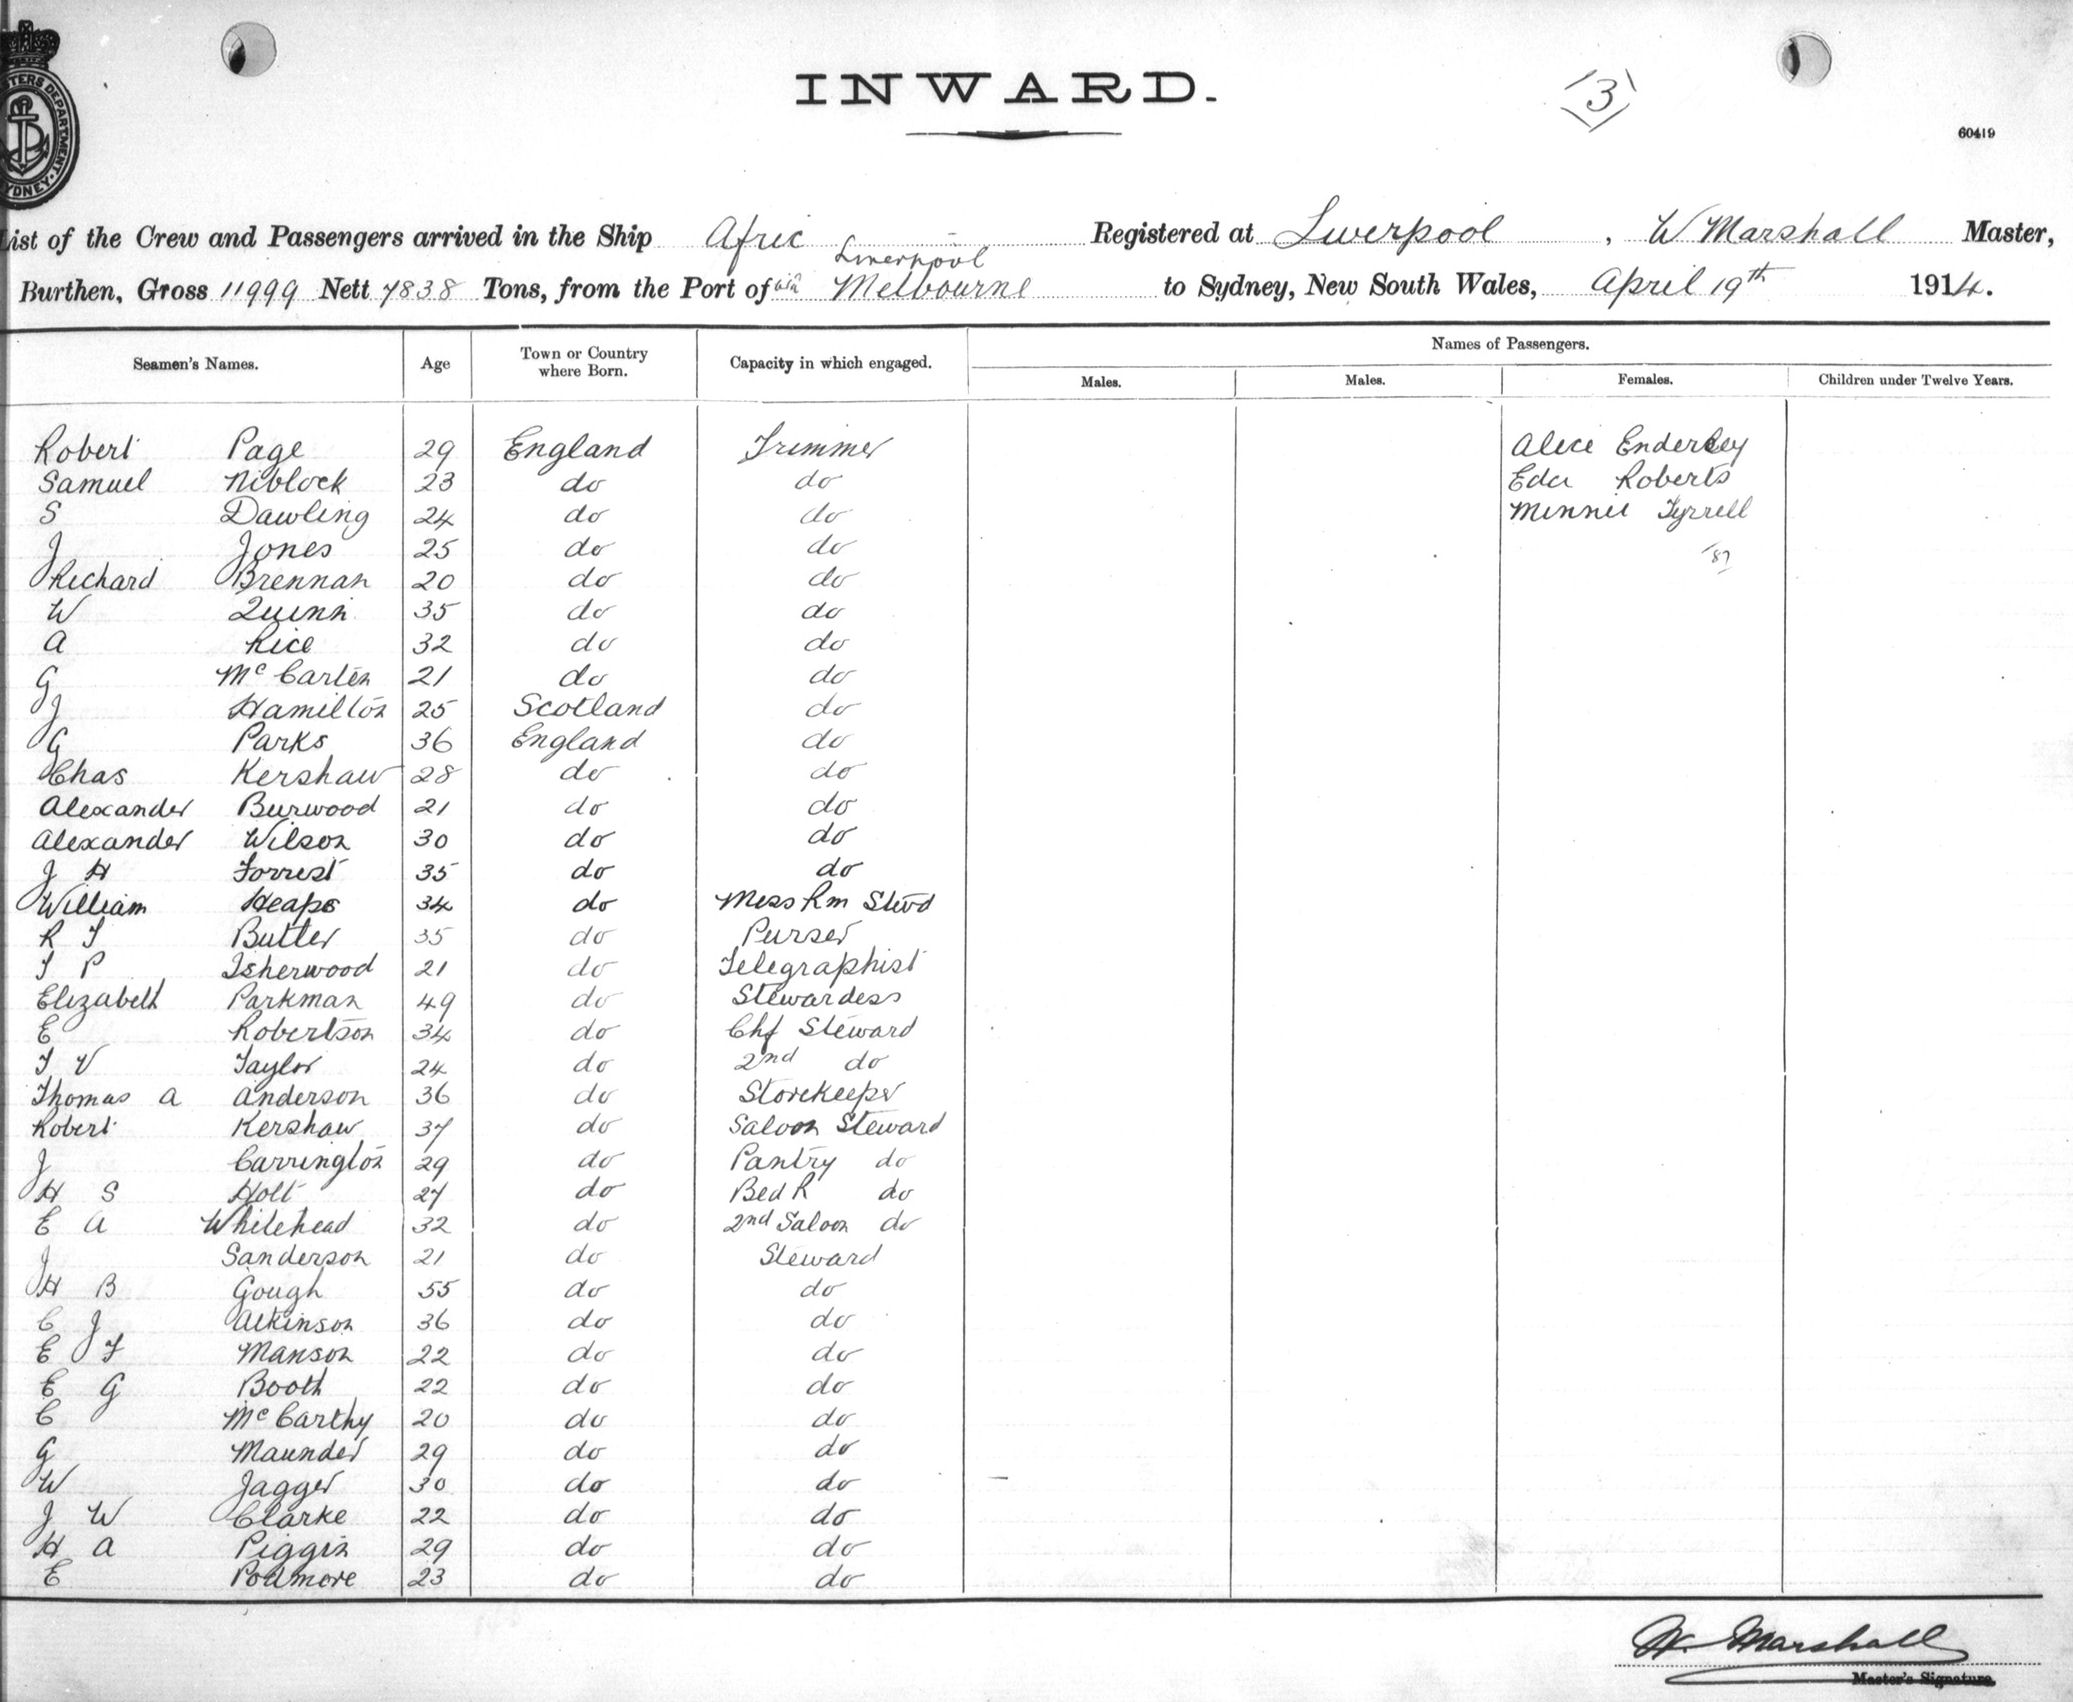 INWARD.
3
60419
STERS DEPARTMENT. SYDNEY.
List of the Crew and Passengers arrived in the Ship Afric Registered at Liverpool, W Marshall Master,
Liverpool
Burthen, Gross 11999 Nett 7838 Tons, from the Port of via Melbourne to Sydney, New South Wales, April 19th 1914.
Seamen's Names. Age Town or Country where Born. Capacity in which engaged. Names of Passengers.
Males. Males. Females. Children under Twelve Years.
Robert Page 29 England Trimmer Alice Enderley
Samuel Niblock 23 do do Eda Roberts
S Dawling 24 do do Minnie Tyrrell
J Jones 25 do do
Richard Brennan 20 do do
W Quinn 35 do do
A Rice 32 do do
G McCarten 21 do do
J Hamilton 25 Scotland do
G Parks 36 England do
Chas Kershaw 28 do do
Alexander Burwood 21 do do
Alexander Wilson 30 do do
J H Forrest 35 do do
William Heaps 34 do Mess Rm Stwd
R T Butler 35 do Purser
T P Isherwood 21 do Telegraphist
Elizabeth Parkman 49 do Stewardess
E Robertson 34 do Chf Steward
T V Taylor 24 do 2nd do
Thomas A Anderson 36 do Storekeeper
Robert Kershaw 37 do Saloon Steward
J Carrington 29 do Pantry do
H S Holt 27 do Bed R do
E A Whitehead 32 do 2nd Saloon do
J Sanderson 21 do Steward
H B Gough 55 do do
C J Atkinson 36 do do
E F Manson 22 do do
E G Booth 22 do do
C McCarthy 20 do do
G Maunder 29 do do
W Jagger 30 do do
J W Clarke 22 do do
H A Piggin 29 do do
E Podmore 23 do do
W. Marshall
Master's Signature.